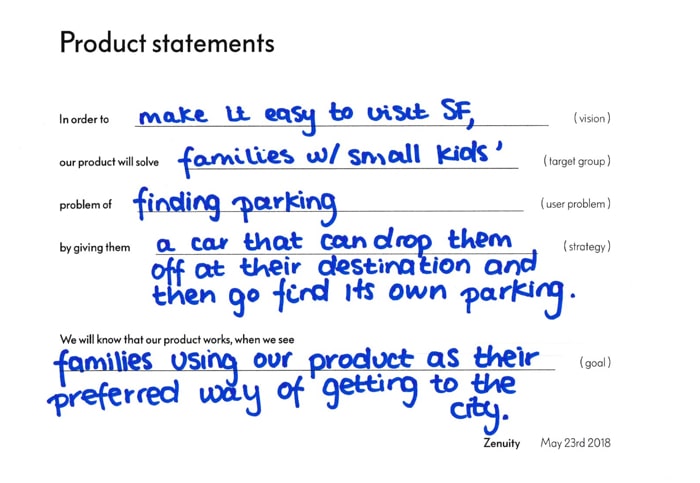 Product statements
In order to make it easy to visit SF, (vision)
our product will solve families w/ small kids' (target group)
problem of finding parking (user problem)
by giving them a car that can drop them (strategy)
off at their destination and
then go find its own parking.
We will know that our product works, when we see
families using our product as their (goal)
preferred way of getting to the
city.
Zenuity May 23rd 2018